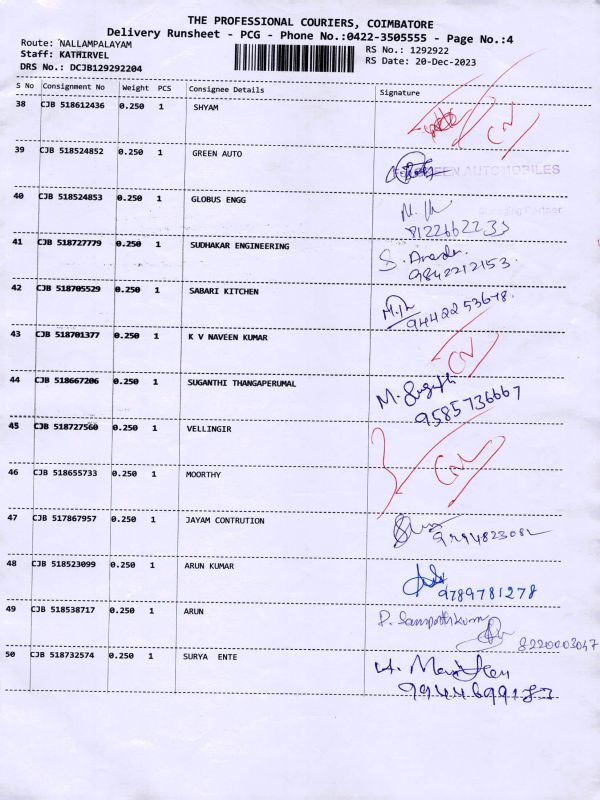 THE PROFESSIONAL COURIERS, COIMBATORE
Delivery Runsheet - PCG - Phone No.:0422-3505555 - Page No.:4
Route: NALLAMPALAYAM
Staff: KATHIRVEL
DRS No.: DCJB129292204
RS No.: 1292922
RS Date: 20-Dec-2023
S No Consignment No Weight PCS Consignee Details Signature
38 CJB 518612436 0.250 1 SHYAM
CN
39 CJB 518524852 0.250 1 GREEN AUTO
GREEN AUTOMOBILES
40 CJB 518524853 0.250 1 GLOBUS ENGG
Managing Partner
8122662233
41 CJB 518727779 0.250 1 SUDHAKAR ENGINEERING
S. Anandh
9842212153.
42 CJB 518705529 0.250 1 SABARI KITCHEN
9442253678.
43 CJB 518701377 0.250 1 K V NAVEEN KUMAR
CN
44 CJB 518667206 0.250 1 SUGANTHI THANGAPERUMAL
M. Suganthi
9585736667
45 CJB 518727560 0.250 1 VELLINGIR
46 CJB 518655733 0.250 1 MOORTHY
CN
47 CJB 517867957 0.250 1 JAYAM CONTRUTION
9294823082
48 CJB 518523099 0.250 1 ARUN KUMAR
9789781278
49 CJB 518538717 0.250 1 ARUN
P. Sampathkumar
8220003047
50 CJB 518732574 0.250 1 SURYA ENTE